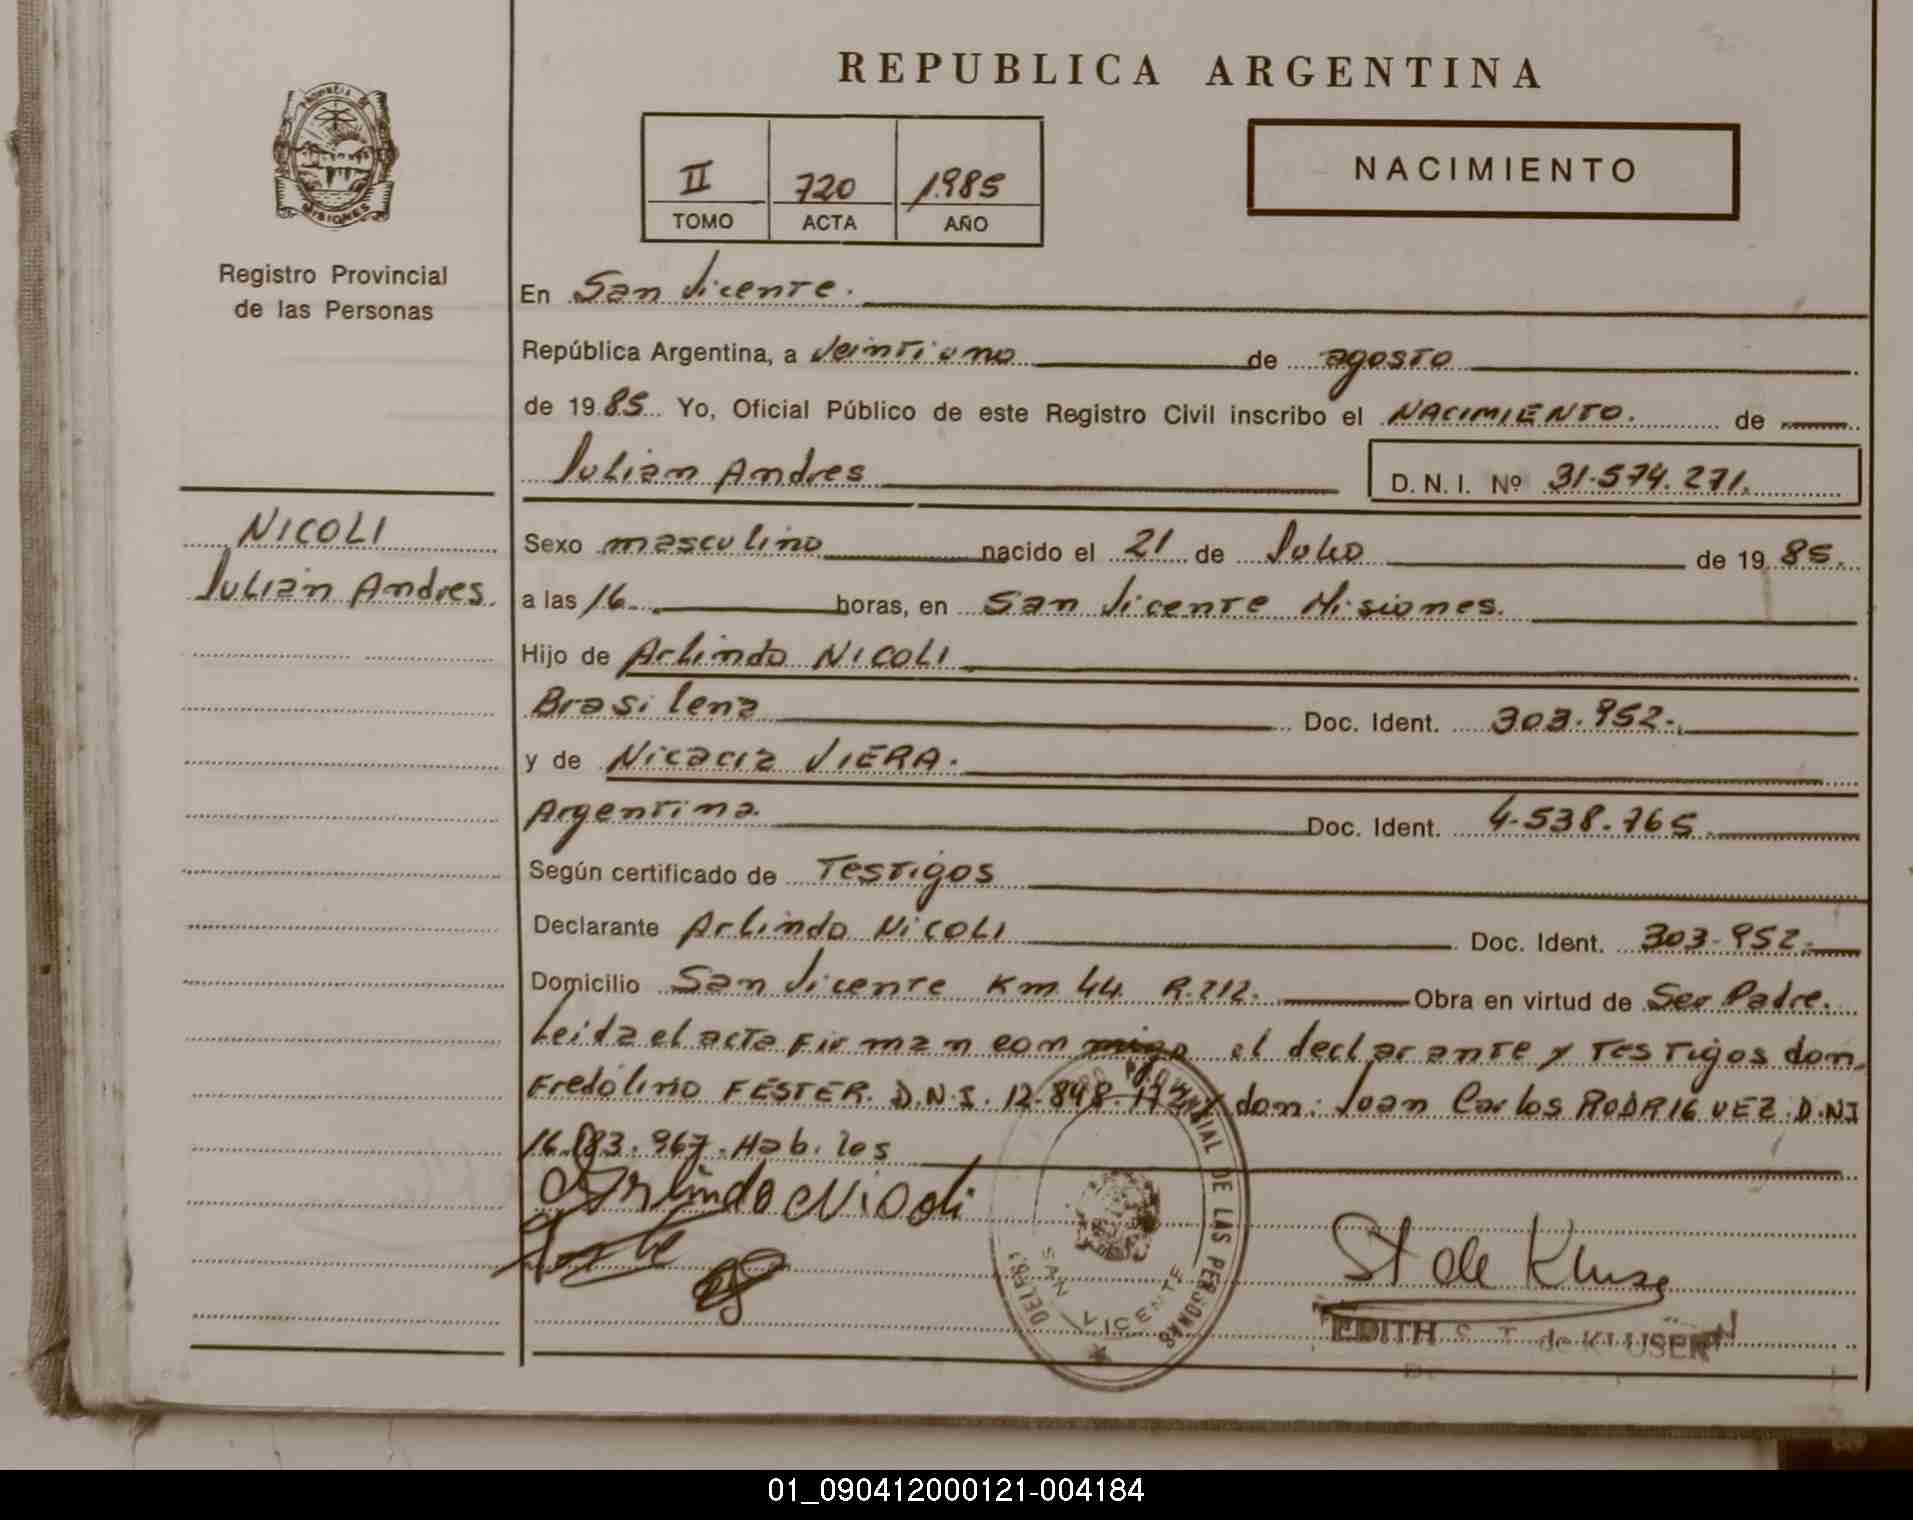 REPUBLICA ARGENTINA
PROVINCIA DE
MISIONES
Registro Provincial
de las Personas
II 720 1985
TOMO ACTA AÑO
NACIMIENTO
En San Vicente.
República Argentina, a Veintiuno de agosto
de 1985. Yo, Oficial Público de este Registro Civil inscribo el NACIMIENTO. de
Julian Andres D. N. I. Nº 31.574.271.
NICOLI
Julian Andres.
Sexo masculino nacido el 21 de Julio de 1985.
a las 16. horas, en San Vicente Misiones.
Hijo de Arlindo NICOLI
Brasilena Doc. Ident. 303.952.
y de Nicacia VIERA.
Argentina. Doc. Ident. 4.538.765
Según certificado de Testigos
Declarante Arlindo NICOLI Doc. Ident. 303.952.
Domicilio San Vicente Km 44 R.212. Obra en virtud de Ser Padre.
Leida el acta Firman con migo el declarante y Testigos don
Fredolino FESTER. D.N.I. 12.848. y don: Juan Carlos RODRIGUEZ. D.NI
16. 83.967. Hab. les
Arlindo Nicoli
St de Kluse
EDITH S. T. de KLUSER
PROVINCIAL DE LAS PERSONAS
SAN VICENTE
01_090412000121-004184